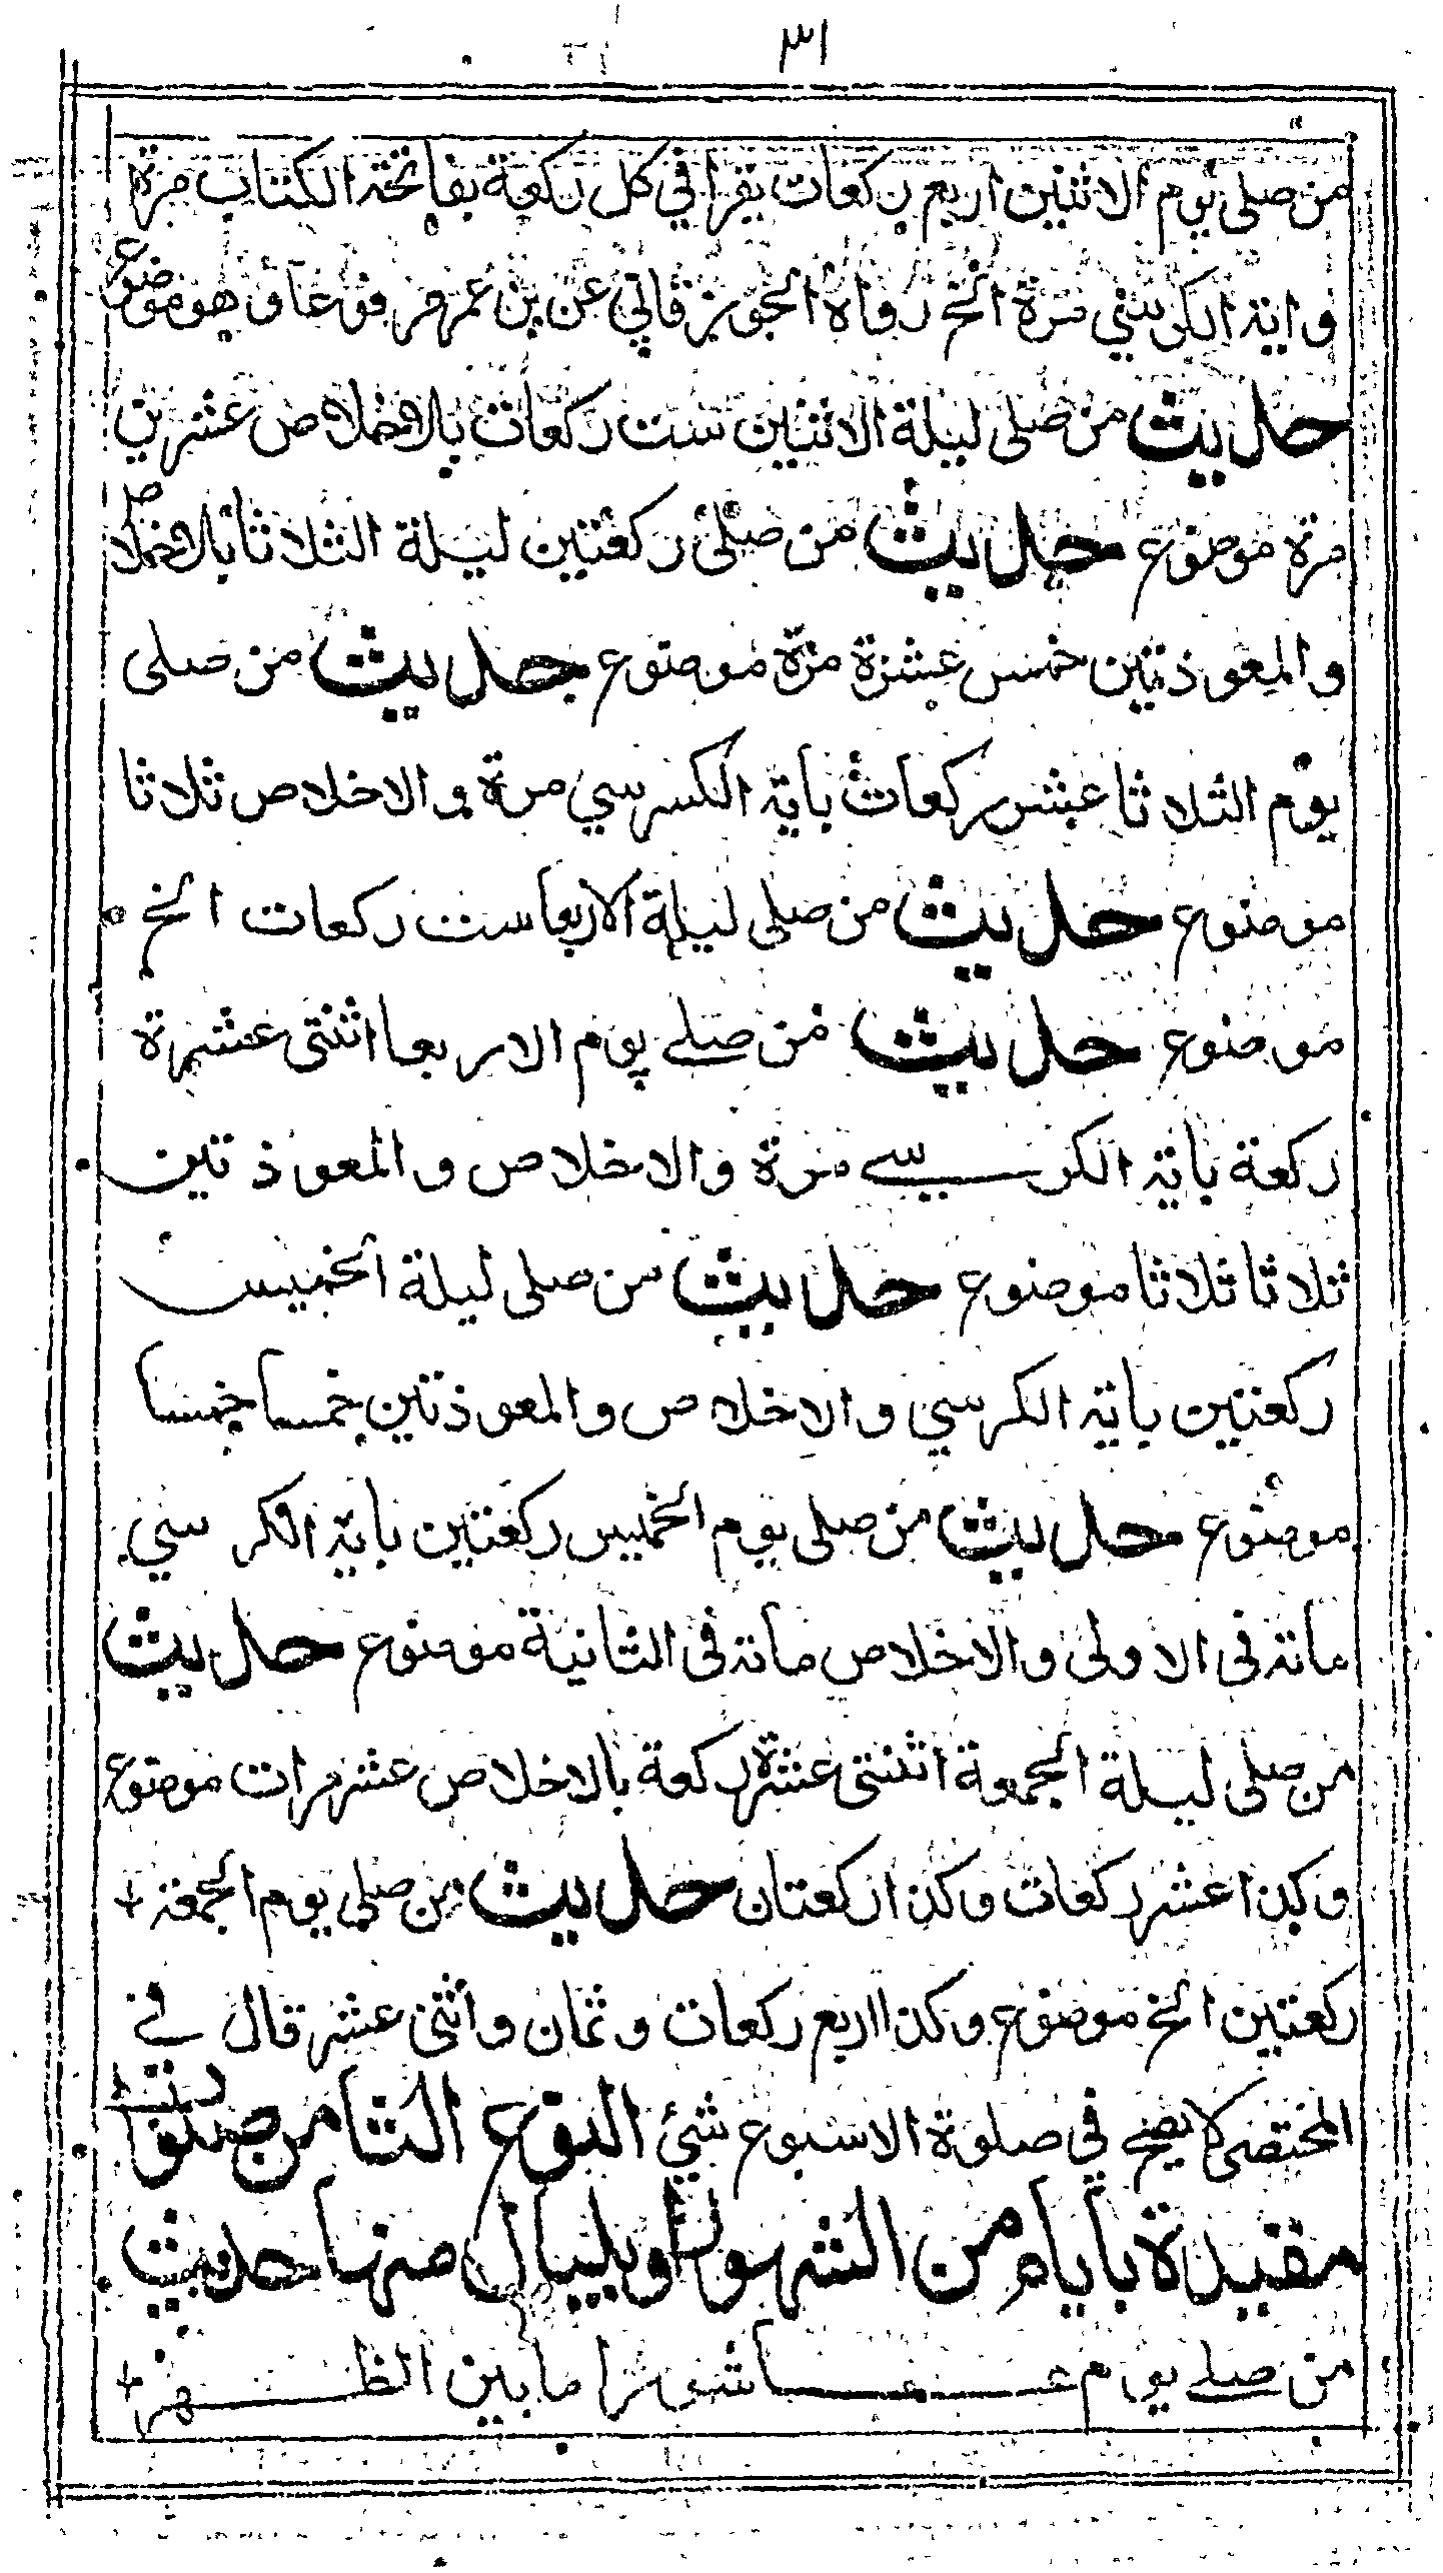 ٣١
من صلى يوم الاثنين اربع ركعات يقرا في كل ركعة بفاتحة الكتاب مرة
واية الكرسي مرة الخ رواه الجوزقاني عن بن عمر مرفوعا وهو موضوع
حديث من صلى ليلة الاثنين ست ركعات بالاخلاص عشرين
مرة موضوع حديث من صلى ركعتين ليلة الثلاثا بالاخلاص
والمعوذتين خمس عشرة مرة موضوع حديث من صلى
يوم الثلاثا عشر ركعات باية الكرسي مرة والاخلاص ثلاثا
موضوع حديث من صلى ليلة الاربعا ست ركعات الخ
موضوع حديث من صلے يوم الاربعا اثنتى عشرة
ركعة باية الكرسے مرة والاخلاص والمعوذتين
ثلاثا ثلاثا موضوع حديث من صلى ليلة الخميس
ركعتين باية الكرسي والاخلاص والمعوذتين خمسا خمسا
موضوع حديث من صلى يوم الخميس ركعتين باية الكرسي
مائة فى الاولى والاخلاص مائة فى الثانية موضوع حديث
من صلى ليلة الجمعة اثنتى عشرة ركعة بالاخلاص عشر مرات موضوع
وكذا عشر ركعات وكذا ركعتان حديث من صلى يوم الجمعة
ركعتين الخ موضوع وكذا اربع ركعات وثمان واثنى عشر قال فے
المختصر لا يصح في صلوة الاسبوع شئ النوع الثامن صلوات
مقيدة بايام من الشهور او بليال منها حديث
من صلے يوم عاشورا ما بين الظهر